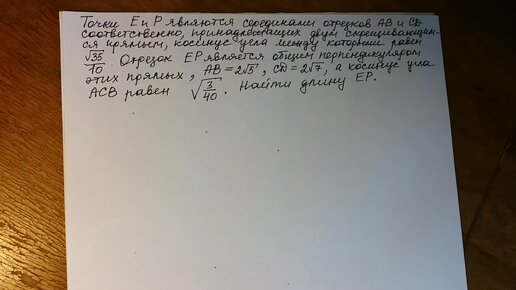 Точки E и P являются серединами отрезков AB и CD
соответственно, принадлежащих двум скрещивающим-
ся прямым, косинус угла между которыми равен
√35/10. Отрезок EP является общим перпендикуляром
этих прямых, AB = 2√5, CD = 2√7, а косинус угла
ACB равен √(3/40). Найти длину EP.